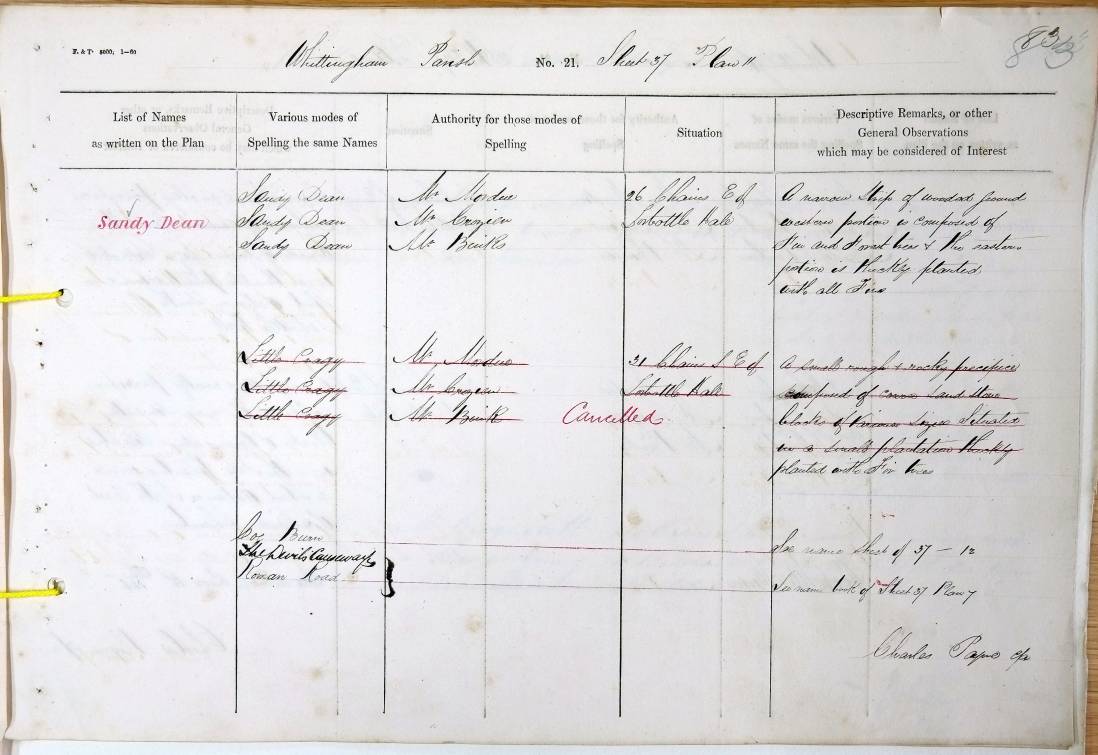 F. & T. 8000; 1—60
Whittingham Parish No. 21. Sheet 37 Plan 11
List of Names
as written on the Plan
Various modes of
Spelling the same Names
Authority for those modes of
Spelling
Situation
Descriptive Remarks, or other
General Observations
which may be considered of Interest
Sandy Dean
Sandy Dean
Sandy Dean
Sandy Dean
Mr
Mr Crozier
Mr
26 Chains E of
A narrow Strip of wooded ground
western portion is composed of
Firs and Forest trees & the eastern
portion is thickly planted
with all Firs
Little Cragg
Little Cragg
Little Cragg
Mr
Mr Crozier
Mr
Cancelled.
31 Chains S E of
A small rough & rocky precipice
composed of Sand Stone
blocks of Various Sizes Situated
in a small plantation thickly
planted with Fir trees
Burn
The Devils Causeway
Roman Road
See name Sheet of 37 – 12
See name book of Sheet 37 Plan 7
Charles